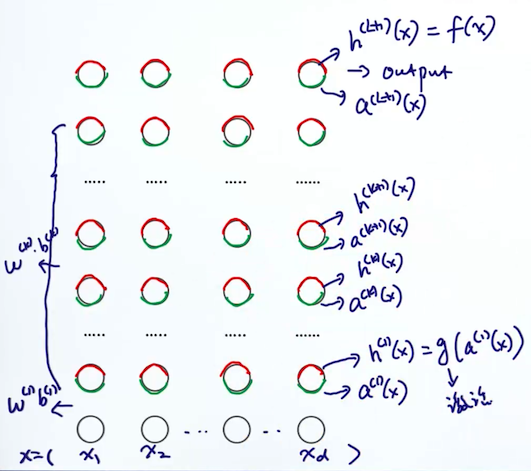 h^(L+1)(x) = f(x)
→ output
a^(L+1)(x)
......
h^(k+1)(x)
a^(k+1)(x)
w^(k), b^(k)
h^(k)(x)
a^(k)(x)
......
h^(1)(x) = g(a^(1)(x))
a^(1)(x)
w^(1) b^(1)
x = ( x₁ x₂ x_d )